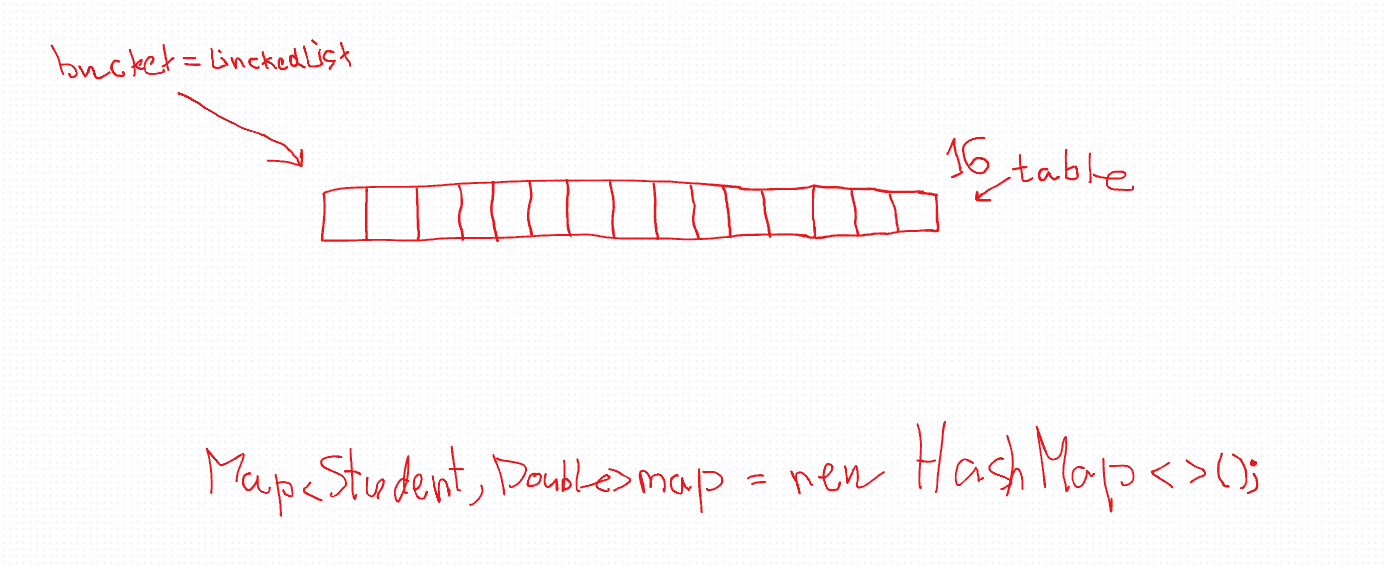 bucket = LinckedList
16
table
Map<Student, Double> map = new HashMap<>();